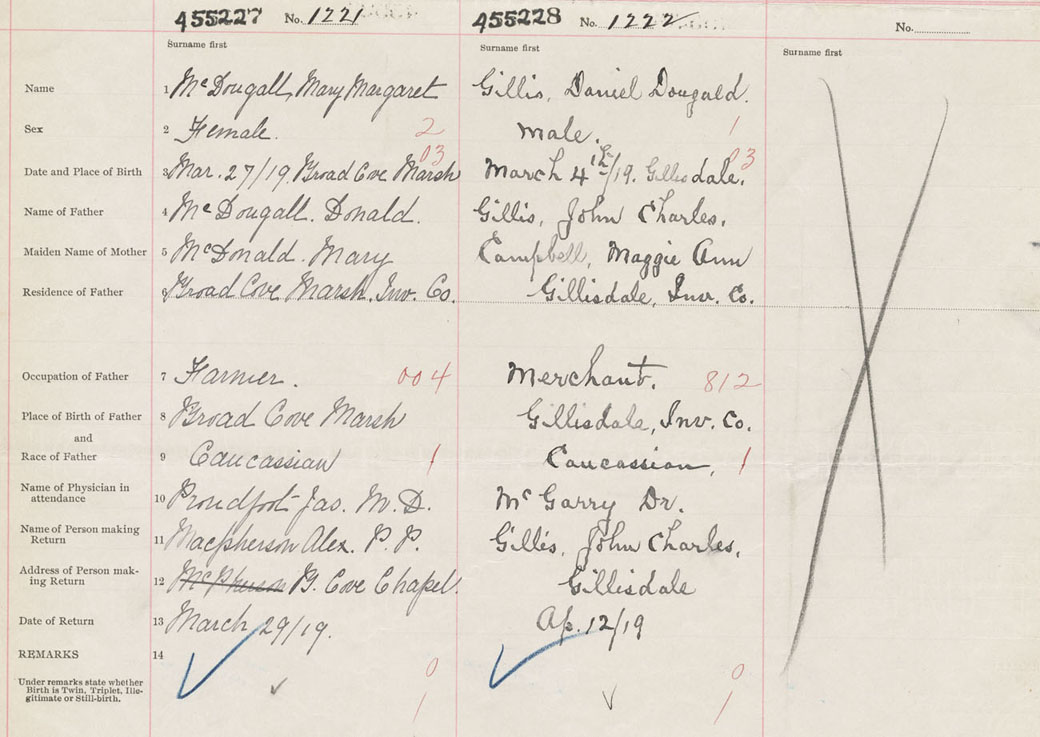 455227 No. 1221 455228 No. 1222 No.
Surname first Surname first Surname first
Name 1 McDougall, Mary Margaret Gillis, Daniel Dougald.
Sex 2 Female. 2 male. 1
03 03
Date and Place of Birth 3 Mar. 27/19. Broad Cove Marsh March 4th/19. Gillisdale.
Name of Father 4 McDougall. Donald. Gillis, John Charles.
Maiden Name of Mother 5 McDonald. Mary Campbell, Maggie Ann
Residence of Father 6 Broad Cove Marsh. Inv. Co. Gillisdale, Inv. Co.
Occupation of Father 7 Farmer. 004 Merchant. 812
Place of Birth of Father 8 Broad Cove Marsh Gillisdale, Inv. Co.
and
Race of Father 9 Caucassian 1 Caucassian, 1
Name of Physician in
attendance 10 Proudfoot Jas. M.D. McGarry Dr.
Name of Person making
Return 11 Macpherson Alex. P.P. Gillis, John Charles,
Address of Person mak-
ing Return 12 McPherson B. Cove Chapel. Gillisdale
Date of Return 13 March 29/19. Ap. 12/19
REMARKS 14
0 0
Under remarks state whether
Birth is Twin, Triplet, Ille-
gitimate or Still-birth.
1 1